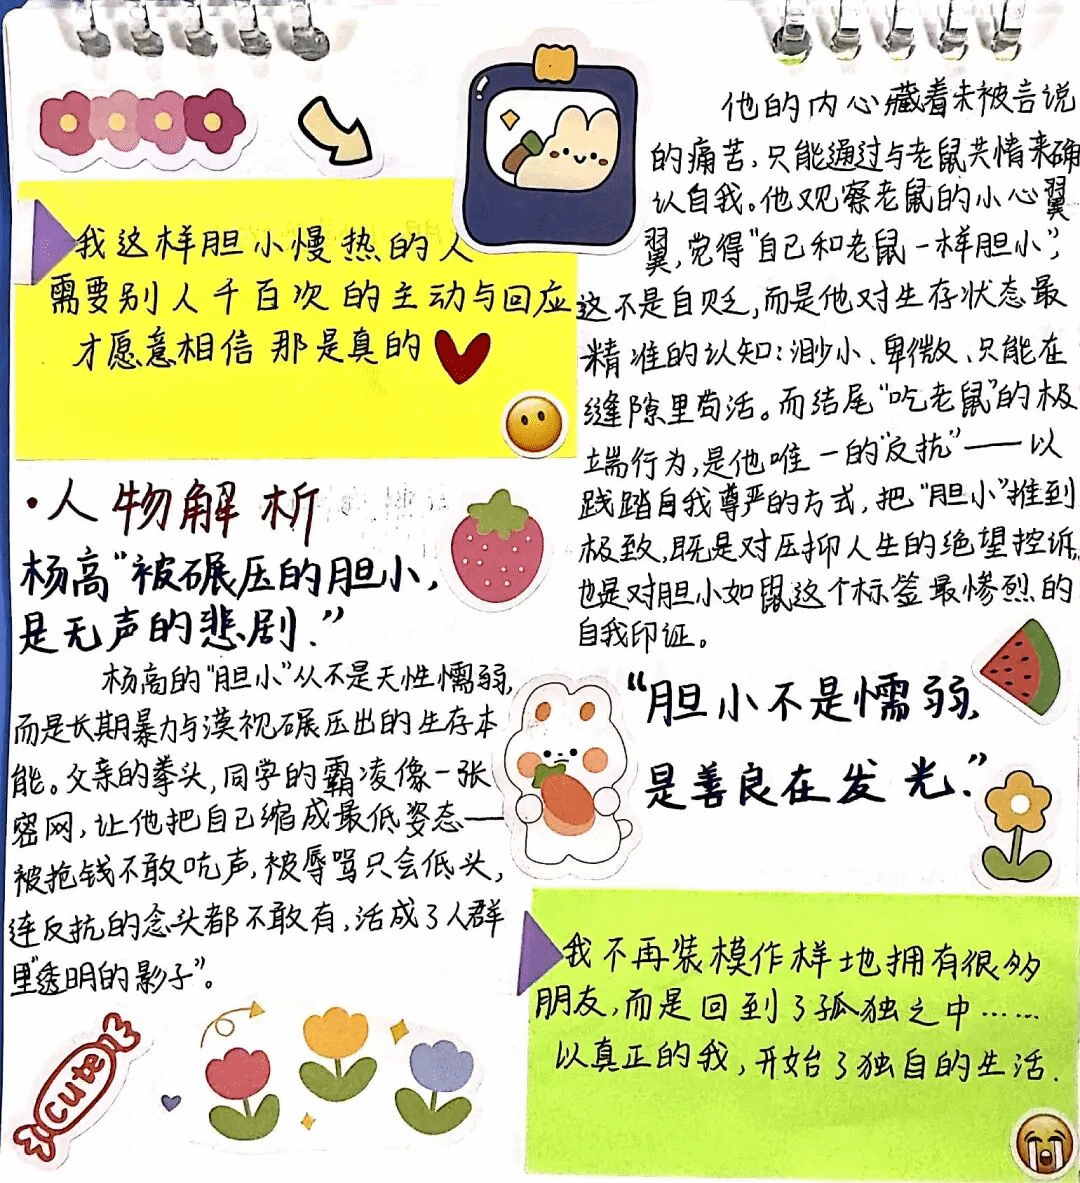 我这样胆小慢热的人
需要别人千百次的主动与回应
才愿意相信那是真的
·人物解析
杨高“被碾压的胆小,
是无声的悲剧.”
杨高的“胆小”从不是天性懦弱,
而是长期暴力与漠视碾压出的生存本
能。父亲的拳头,同学的霸凌像一张
密网,让他把自己缩成最低姿态——
被抢钱不敢吭声,被辱骂只会低头,
连反抗的念头都不敢有,活成了人群
里“透明的影子”。
cute
他的内心藏着未被言说
的痛苦,只能通过与老鼠共情来确
认自我。他观察老鼠的小心翼
翼,觉得“自己和老鼠一样胆小”,
这不是自贬,而是他对生存状态最
精准的认知:渺小、卑微、只能在
缝隙里苟活。而结尾“吃老鼠”的极
端行为,是他唯一的“反抗”——以
践踏自我尊严的方式,把“胆小”推到
极致,既是对压抑人生的绝望控诉,
也是对胆小如鼠这个标签最惨烈的
自我印证。
“胆小不是懦弱,
是善良在发光.”
我不再装模作样地拥有很多
朋友,而是回到了孤独之中……
以真正的我,开始了独自的生活.